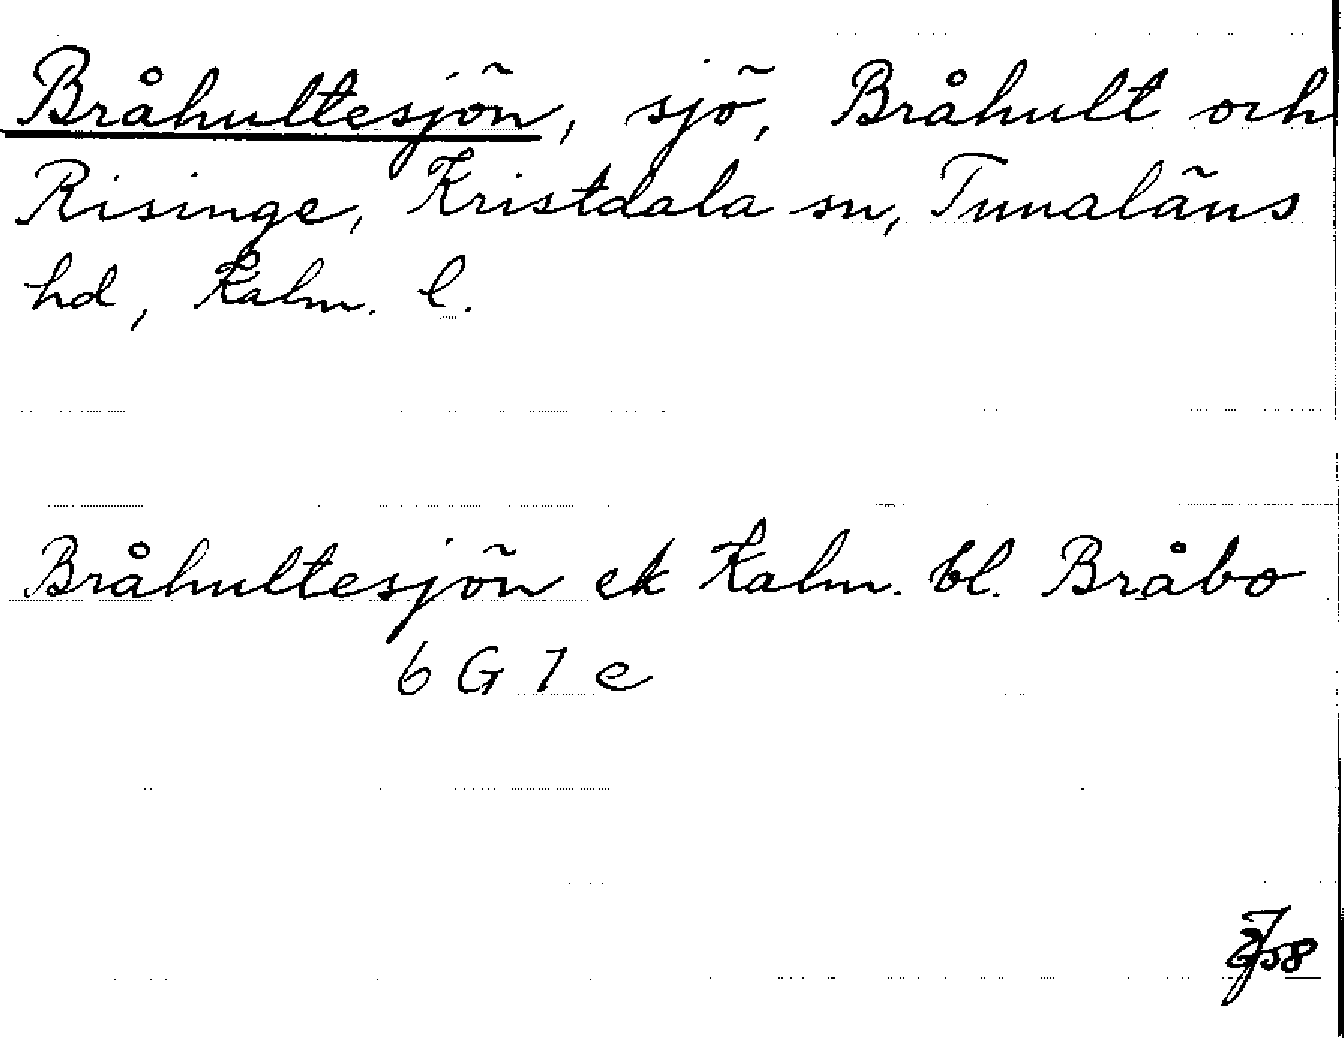 Bråhultesjön, sjö, Bråhult och
Risinge, Kristdala sn, Tunaläns
hd, Kalm. l.
Bråhultesjön ek Kalm. bl. Bråbo
6 G 7 e